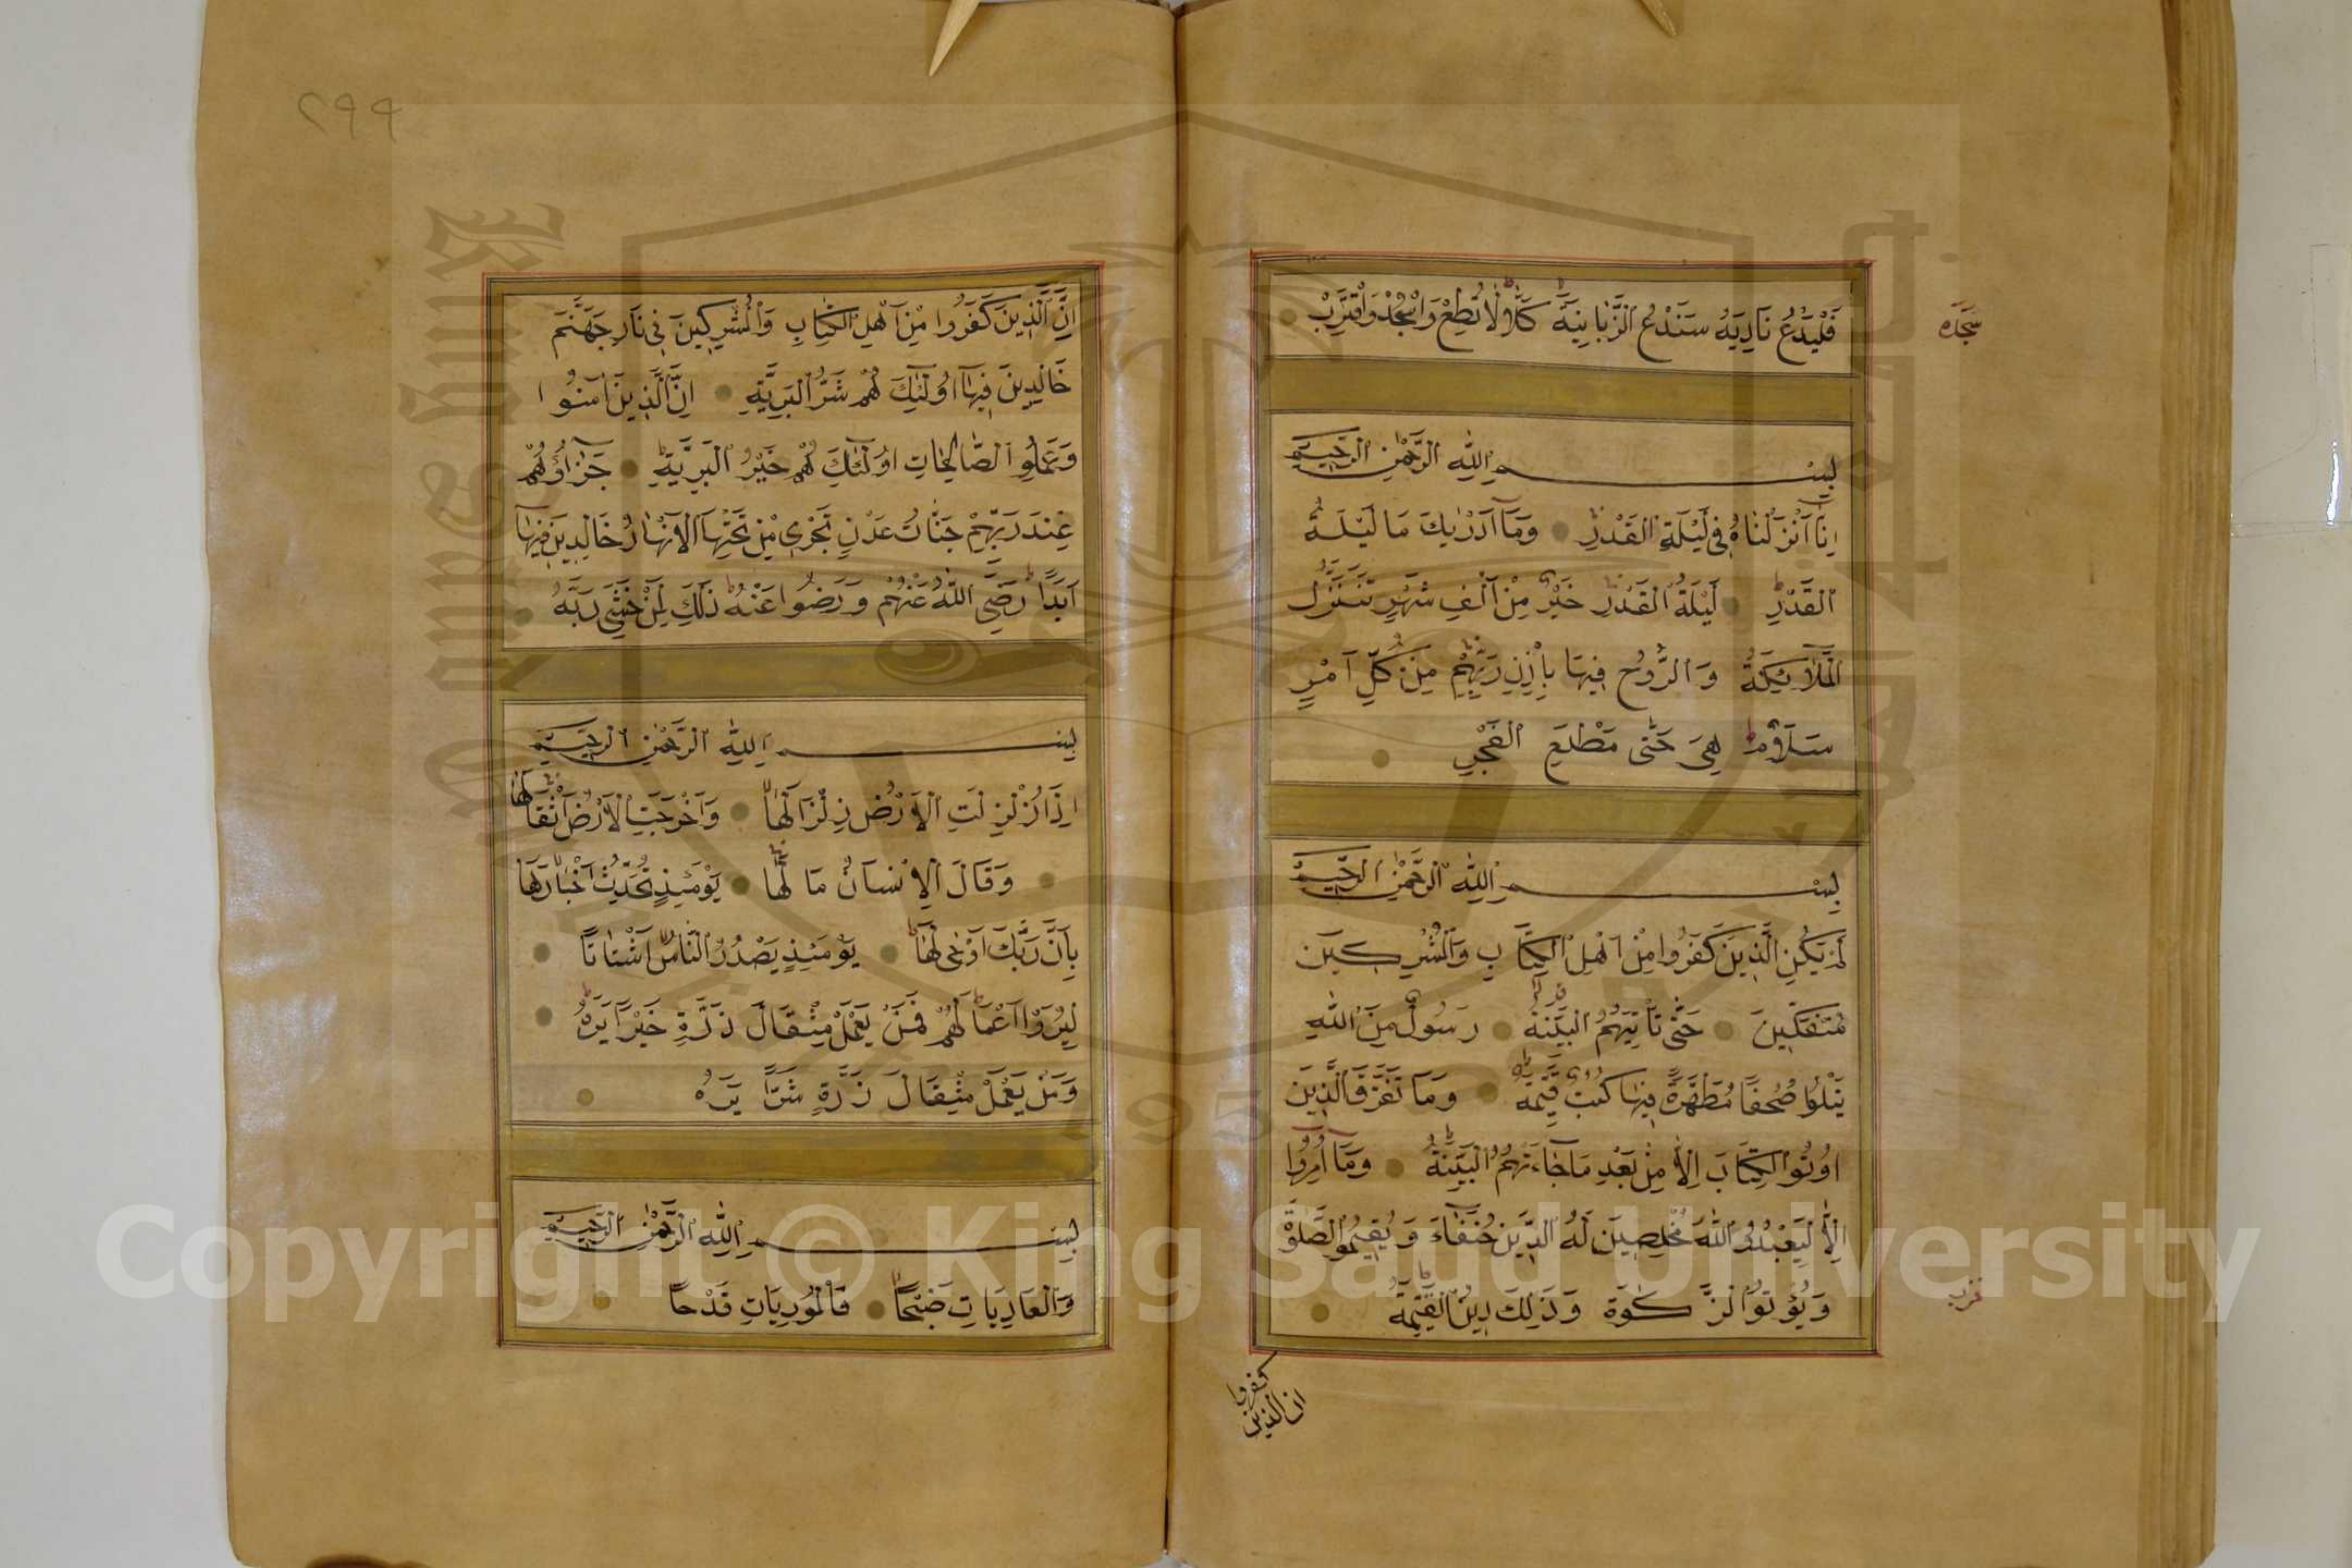 فَلْيَدْعُ نَادِيَهُ سَنَدْعُ الزَّبَانِيَةَ كَلَّا لَا تُطِعْهُ وَاسْجُدْ وَاقْتَرِبْ
سجده
بِسْمِ اللَّهِ الرَّحْمَٰنِ الرَّحِيمِ
اِنَّا اَنْزَلْنَاهُ فِى لَيْلَةِ الْقَدْرِ وَمَا اَدْرٰيكَ مَا لَيْلَةُ
الْقَدْرِ لَيْلَةُ الْقَدْرِ خَيْرٌ مِنْ اَلْفِ شَهْرٍ تَنَزَّلُ
الْمَلَائِكَةُ وَالرُّوحُ فِيهَا بِاِذْنِ رَبِّهِمْ مِنْ كُلِّ اَمْرٍ
سَلَامٌ هِىَ حَتّٰى مَطْلَعِ الْفَجْرِ
بِسْمِ اللَّهِ الرَّحْمَٰنِ الرَّحِيمِ
لَمْ يَكُنِ الَّذِينَ كَفَرُوا مِنْ اَهْلِ الْكِتَابِ وَالْمُشْرِكِينَ
مُنْفَكِّينَ حَتّٰى تَأْتِيَهُمُ الْبَيِّنَةُ رَسُولٌ مِنَ اللّٰهِ
يَتْلُوا صُحُفًا مُطَهَّرَةً فِيهَا كُتُبٌ قَيِّمَةٌ وَمَا تَفَرَّقَ الَّذِينَ
اُوتُوا الْكِتَابَ اِلَّا مِنْ بَعْدِ مَا جَاءَتْهُمُ الْبَيِّنَةُ وَمَا اُمِرُوا
اِلَّا لِيَعْبُدُوا اللّٰهَ مُخْلِصِينَ لَهُ الدِّينَ حُنَفَاءَ وَيُقِيمُوا الصَّلٰوةَ
وَيُؤْتُوا الزَّكٰوةَ وَذٰلِكَ دِينُ الْقَيِّمَةِ
ان الذين
كفروا
٢٩٩
اِنَّ الَّذِينَ كَفَرُوا مِنْ اَهْلِ الْكِتَابِ وَالْمُشْرِكِينَ فِى نَارِ جَهَنَّمَ
خَالِدِينَ فِيهَا اُولٰئِكَ هُمْ شَرُّ الْبَرِيَّةِ اِنَّ الَّذِينَ اٰمَنُوا
وَعَمِلُوا الصَّالِحَاتِ اُولٰئِكَ هُمْ خَيْرُ الْبَرِيَّةِ جَزَاؤُهُمْ
عِنْدَ رَبِّهِمْ جَنَّاتُ عَدْنٍ تَجْرِى مِنْ تَحْتِهَا الْاَنْهَارُ خَالِدِينَ فِيهَا
اَبَدًا رَضِىَ اللّٰهُ عَنْهُمْ وَرَضُوا عَنْهُ ذٰلِكَ لِمَنْ خَشِىَ رَبَّهُ
بِسْمِ اللَّهِ الرَّحْمَٰنِ الرَّحِيمِ
اِذَا زُلْزِلَتِ الْاَرْضُ زِلْزَالَهَا وَاَخْرَجَتِ الْاَرْضُ اَثْقَالَهَا
وَقَالَ الْاِنْسَانُ مَا لَهَا يَوْمَئِذٍ تُحَدِّثُ اَخْبَارَهَا
بِاَنَّ رَبَّكَ اَوْحٰى لَهَا يَوْمَئِذٍ يَصْدُرُ النَّاسُ اَشْتَاتًا
لِيُرَوْا اَعْمَالَهُمْ فَمَنْ يَعْمَلْ مِثْقَالَ ذَرَّةٍ خَيْرًا يَرَهُ
وَمَنْ يَعْمَلْ مِثْقَالَ ذَرَّةٍ شَرًّا يَرَهُ
بِسْمِ اللَّهِ الرَّحْمَٰنِ الرَّحِيمِ
وَالْعَادِيَاتِ ضَبْحًا فَالْمُورِيَاتِ قَدْحًا
Copyright © King Saud University